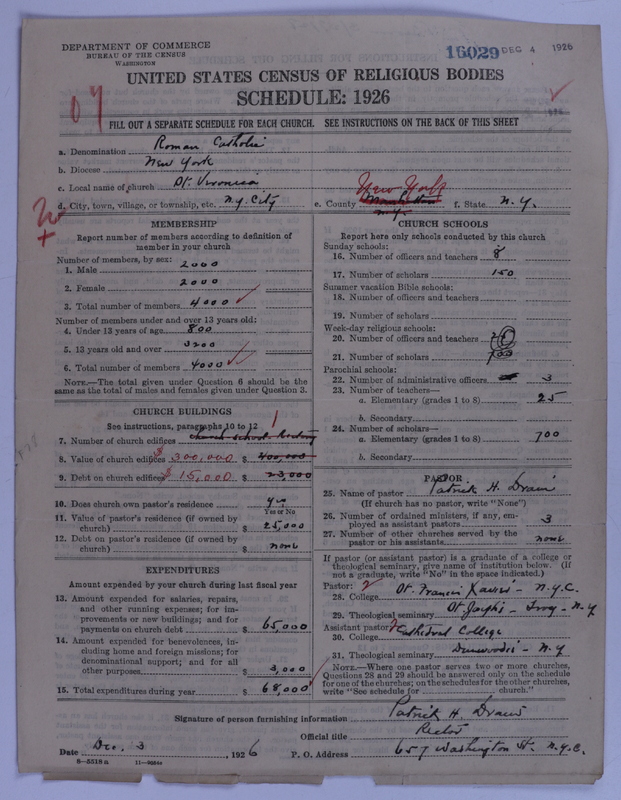 DEPARTMENT OF COMMERCE
BUREAU OF THE CENSUS
WASHINGTON
16029 DEC 4 1926
UNITED STATES CENSUS OF RELIGIOUS BODIES
SCHEDULE: 1926
FILL OUT A SEPARATE SCHEDULE FOR EACH CHURCH. SEE INSTRUCTIONS ON THE BACK OF THIS SHEET
a. Denomination Roman Catholic
b. Diocese New York
c. Local name of church St. Veronica
d. City, town, village, or township, etc. N.Y. City e. County New York f. State N.Y.
MEMBERSHIP
Report number of members according to definition of
member in your church
Number of members, by sex:
1. Male 2000
2. Female 2000
3. Total number of members 4000
Number of members under and over 13 years old:
4. Under 13 years of age 800
5. 13 years old and over 3200
6. Total number of members 4000
NOTE.—The total given under Question 6 should be the
same as the total of males and females given under Question 3.
CHURCH BUILDINGS
See instructions, paragraphs 10 to 12
7. Number of church edifices church school Rectory 1
8. Value of church edifices $300,000 $ 400,000
9. Debt on church edifices $15,000 $ 23,000
10. Does church own pastor's residence yes
Yes or No
11. Value of pastor's residence (if owned by
church) $ 25,000
12. Debt on pastor's residence (if owned by
church) $ none
EXPENDITURES
Amount expended by your church during last fiscal year
13. Amount expended for salaries, repairs,
and other running expenses; for im-
provements or new buildings; and for
payments on church debt $ 65,000
14. Amount expended for benevolences, in-
cluding home and foreign missions; for
denominational support; and for all
other purposes $ 3,000
15. Total expenditures during year $ 68,000
CHURCH SCHOOLS
Report here only schools conducted by this church
Sunday schools:
16. Number of officers and teachers 8
17. Number of scholars 150
Summer vacation Bible schools:
18. Number of officers and teachers
19. Number of scholars
Week-day religious schools:
20. Number of officers and teachers
21. Number of scholars 700
Parochial schools:
22. Number of administrative officers 3
23. Number of teachers—
a. Elementary (grades 1 to 8) 25
b. Secondary
24. Number of scholars—
a. Elementary (grades 1 to 8) 700
b. Secondary
PASTOR
25. Name of pastor Patrick H. Drain
(If church has no pastor, write "None")
26. Number of ordained ministers, if any, em-
ployed as assistant pastors 3
27. Number of other churches served by the
pastor or his assistants none
If pastor (or assistant pastor) is a graduate of a college or
theological seminary, give name of institution below. (If
not a graduate, write "No" in the space indicated.)
Pastor: 2
28. College St. Francis Xavier - N.Y.C.
29. Theological seminary St Josephs - Troy - N.Y
Assistant pastor:
30. College Cathedral College
31. Theological seminary Dunwoodie - N.Y
NOTE.—Where one pastor serves two or more churches,
Questions 28 and 29 should be answered only on the schedule
for one of the churches; on the schedules for the other churches,
write "See schedule for church."
Signature of person furnishing information Patrick H. Drain
Official title Rector
Date Dec. 3, 1926 P. O. Address 657 Washington St. N.Y.C.
8—5518a 11—90644